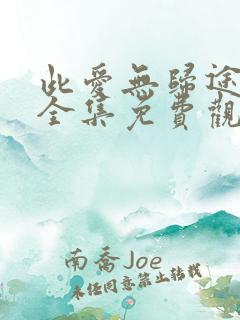 此愛無歸途
全集免費觀
南喬Joe
未任同意禁止转载